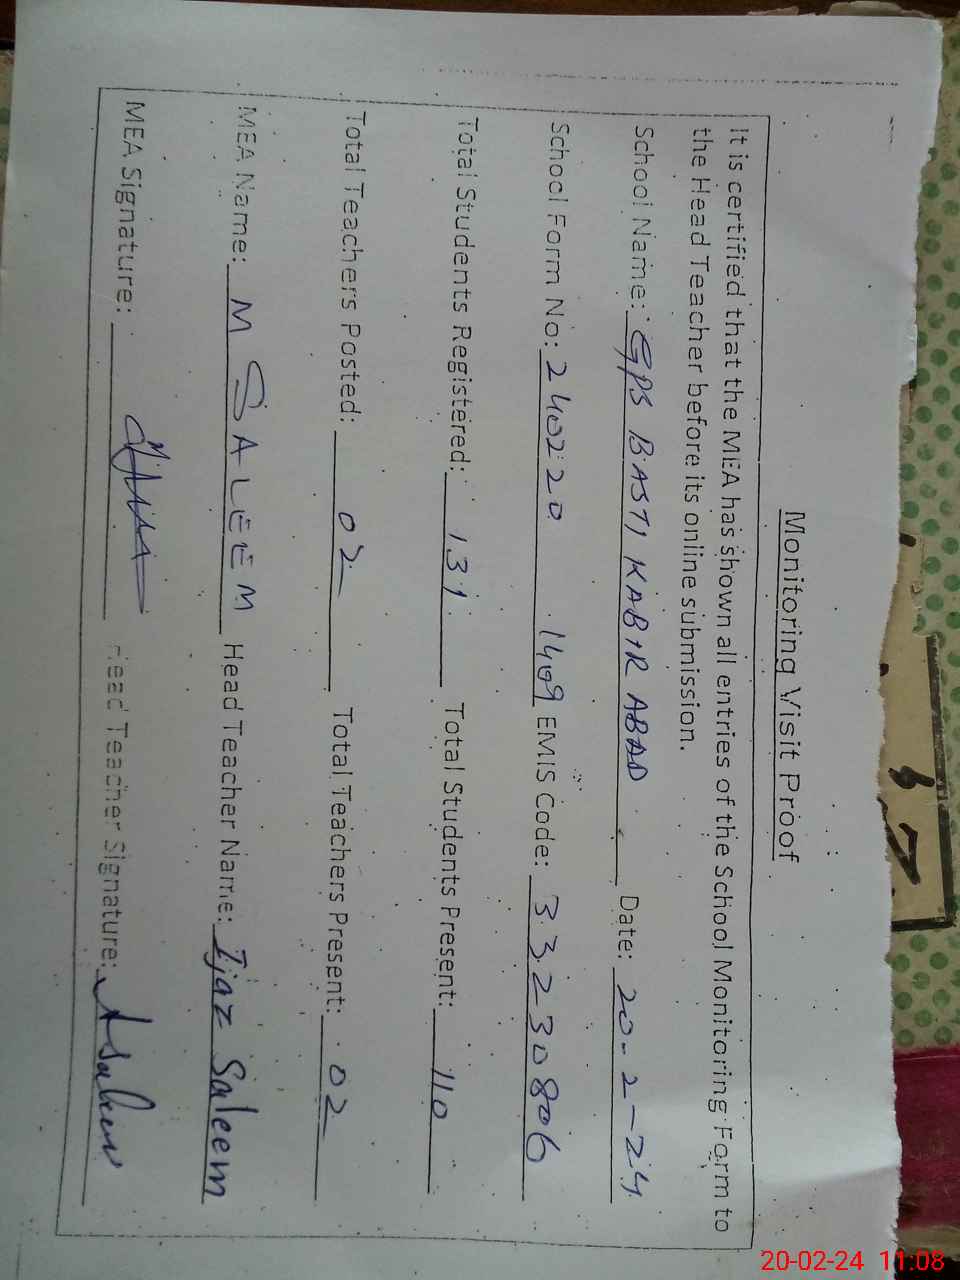 Monitoring Visit Proof
It is certified that the MEA has shown all entries of the School Monitoring Form to
the Head Teacher before its online submission.
School Name: GPS BASTI KABIR ABAD Date: 20-2-24
School Form No: 240220 1409 EMIS Code: 33230806
Total Students Registered: 131 Total Students Present: 110
Total Teachers Posted: 02 Total Teachers Present: 02
MEA Name: M SALEEM Head Teacher Name: Ijaz Saleem
MEA Signature: Head Teacher Signature: ASaleem
20-02-24 11:08